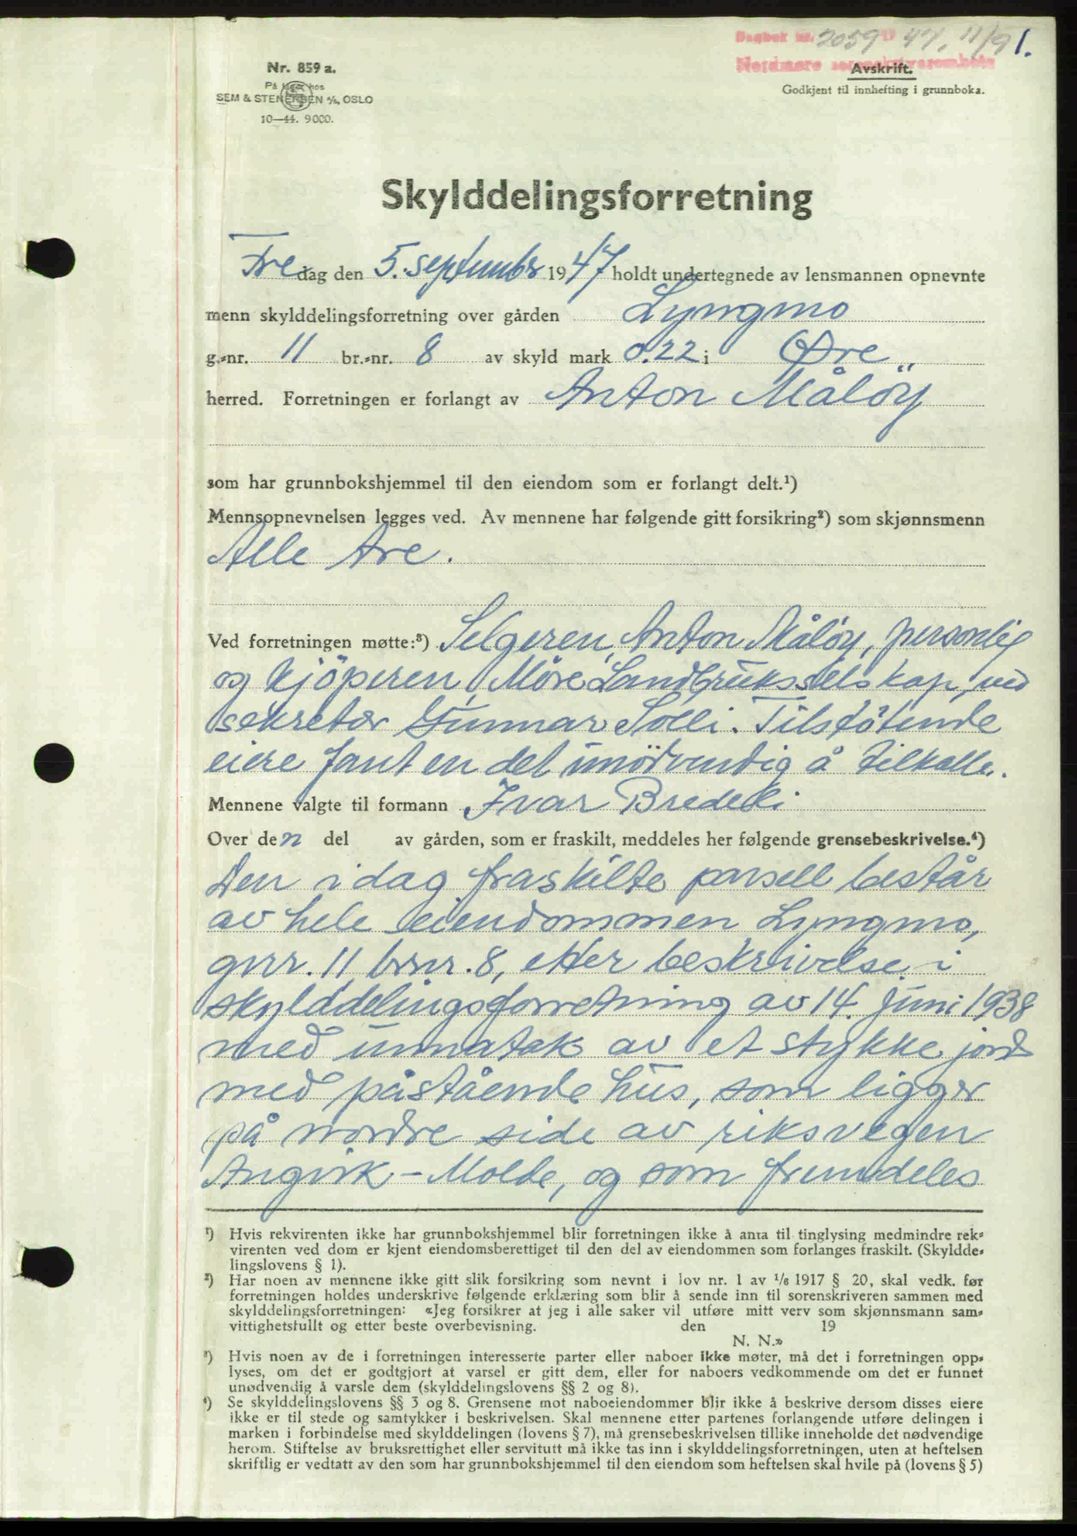 Dagbok nr. 2059 19 47, 11/9 1.
Nordmøre sorenskriverembete
Nr. 859 a.
På lager hos
SEM & STENERSEN A/S, OSLO
10—44. 9000.
Avskrift.
Godkjent til innhefting i grunnboka.
Skylddelingsforretning
Fredag den 5. septumbr 1947 holdt undertegnede av lensmannen opnevnte
menn skylddelingsforretning over gården Lyngmo
g.-nr. 11 br.-nr. 8 av skyld mark 0.22 i Øre
herred. Forretningen er forlangt av Anton Målöy
som har grunnbokshjemmel til den eiendom som er forlangt delt.¹)
Mennsopnevnelsen legges ved. Av mennene har følgende gitt forsikring²) som skjønnsmenn
Alle tre.
Ved forretningen møtte:³) Selgeren, Anton Målöy, personlig
og kjöperen, Möre Landbruksselskap, ved
sekretær Gunnar Solli. Tilstötende
eiere fant en det unödvendig å tilkalle.
Mennene valgte til formann Ivar Bredeli
Over den del av gården, som er fraskilt, meddeles her følgende grensebeskrivelse.⁴)
Den i dag fraskilte parsell består
av hele eiendommen Lyngmo,
gnr. 11 brnr. 8, etter beskrivelse i
skylddelingsforretning av 14. juni 1938
med unntak av et stykke jord
med påstående hus, som ligger
på nordre side av riksvegen
Angvik – Molde, og som fremdeles
¹) Hvis rekvirenten ikke har grunnbokshjemmel blir forretningen ikke å anta til tinglysing medmindre rek-
virenten ved dom er kjent eiendomsberettiget til den del av eiendommen som forlanges fraskilt. (Skyldde-
lingslovens § 1).
²) Har noen av mennene ikke gitt slik forsikring som nevnt i lov nr. 1 av 1/6 1917 § 20, skal vedk. før
forretningen holdes underskrive følgende erklæring som blir å sende inn til sorenskriveren sammen med
skylddelingsforretningen: «Jeg forsikrer at jeg i alle saker vil utføre mitt verv som skjønnsmann sam-
vittighetsfullt og etter beste overbevisning. den 19
N. N.»
³) Hvis noen av de i forretningen interesserte parter eller naboer ikke møter, må det i forretningen opp-
lyses, om det er godtgjort at varsel er gitt dem, eller for naboers vedkommende om det er funnet
unødvendig å varsle dem (skylddelingslovens §§ 2 og 8).
⁴) Se skylddelingslovens §§ 3 og 8. Grensene mot naboeiendommer blir ikke å beskrive dersom disses eiere
ikke er til stede og samtykker i beskrivelsen. Skal mennene etter partenes forlangende utføre delingen i
marken i forbindelse med skylddelingen (lovens § 7), må grensebeskrivelsen tillike inneholde det nødvendige
herom. Stiftelse av bruksrettighet eller servitutt må ikke tas inn i skylddelingsforretningen, uten at heftelsen
skriftlig er vedtatt av den som har grunnbokshjemmel til den eiendom som heftelsen skal hvile på (lovens § 5)